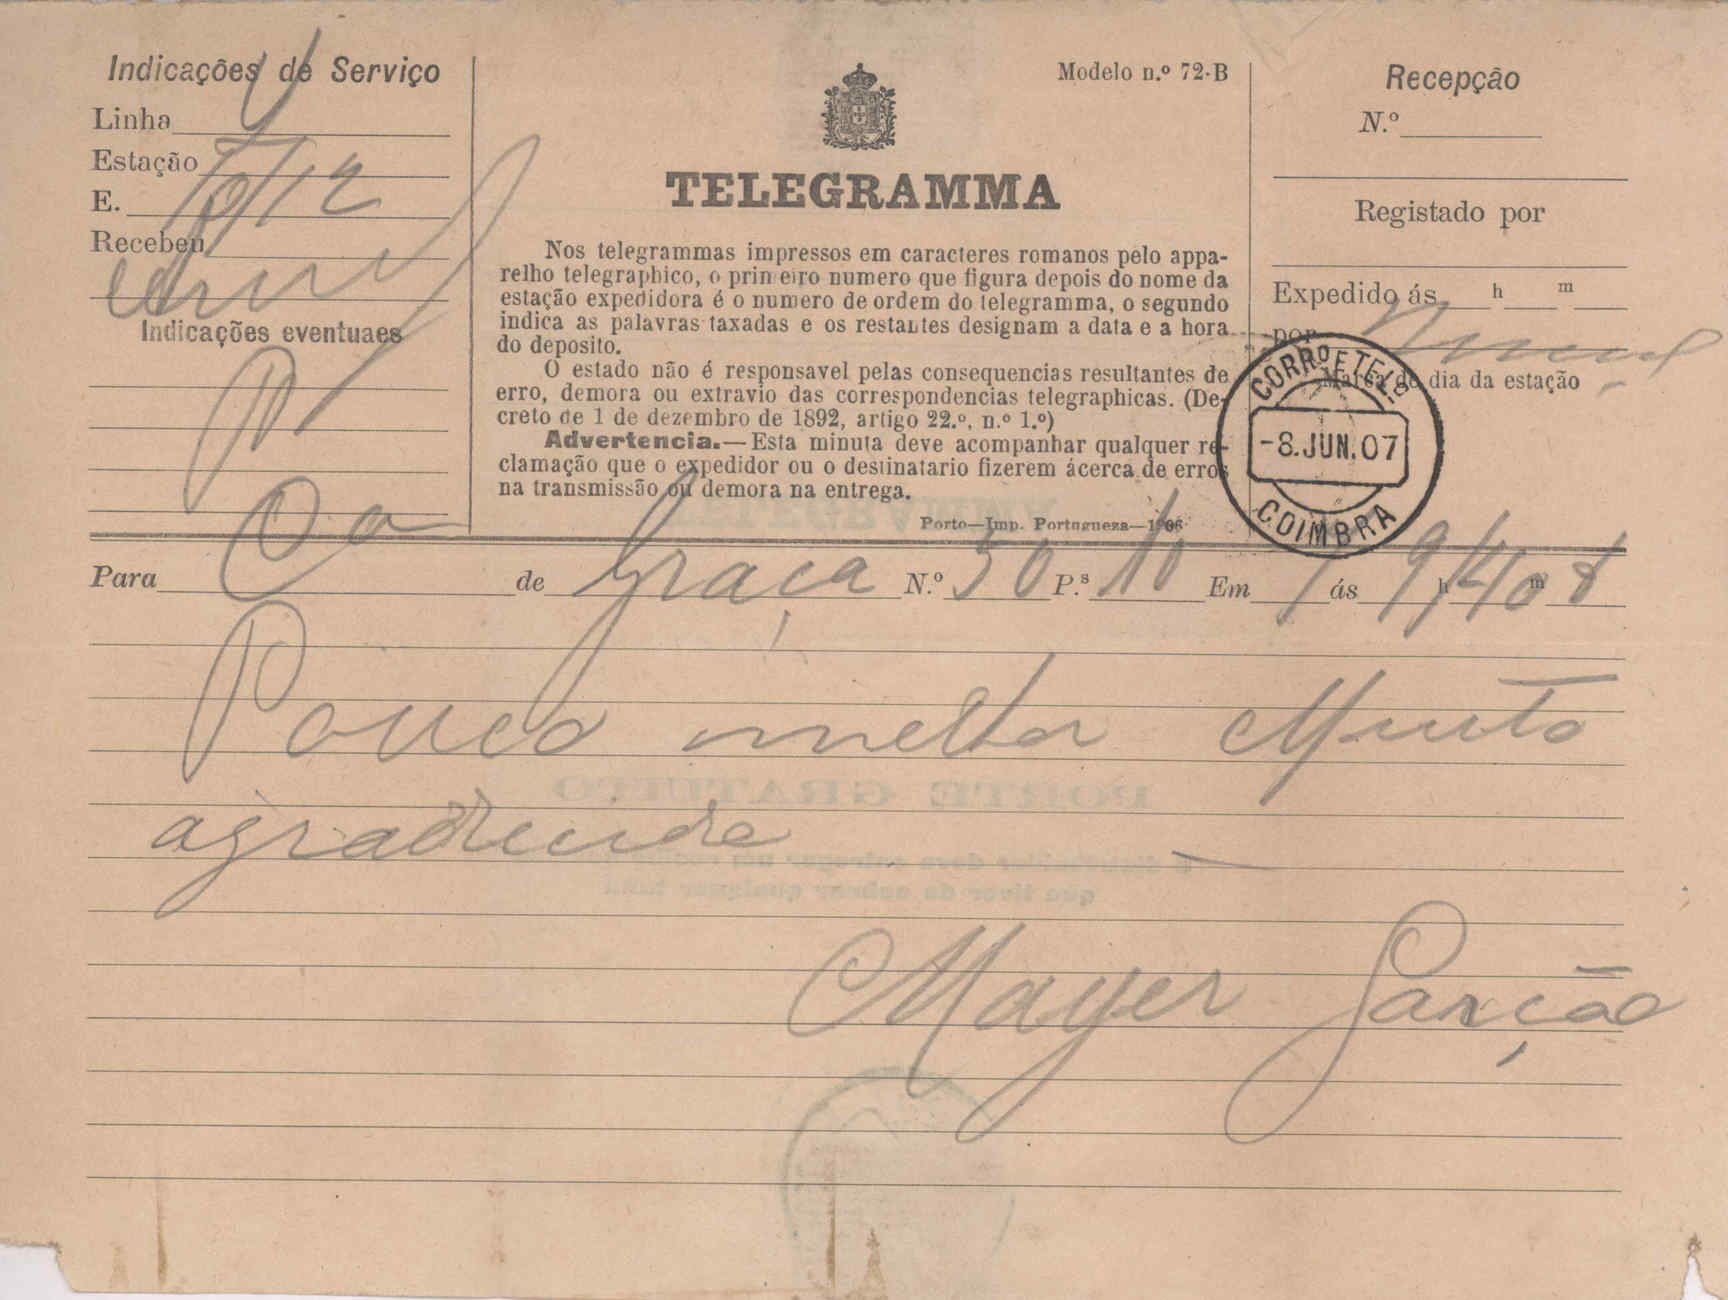 Indicações de Serviço
Linha
Estação
E. 10/12
Recebeu
Indicações eventuaes
Modelo n.º 72-B
TELEGRAMMA
Nos telegrammas impressos em caracteres romanos pelo appa-
relho telegraphico, o primeiro numero que figura depois do nome da
estação expedidora é o numero de ordem do telegramma, o segundo
indica as palavras taxadas e os restantes designam a data e a hora
do deposito.
O estado não é responsavel pelas consequencias resultantes de
erro, demora ou extravio das correspondencias telegraphicas. (De-
creto de 1 de dezembro de 1892, artigo 22.º, n.º 1.º)
Advertencia.—Esta minuta deve acompanhar qualquer re-
clamação que o expedidor ou o destinatario fizerem ácerca de erros
na transmissão ou demora na entrega.
Porto—Imp. Portugueza—1906
Recepção
N.º
Registado por
Expedido ás h m
por
Marca do dia da estação
CORRº E TELº
-8.JUN.07
COIMBRA
Para Ca de Graça N.º 50 P.s 10 Em ás 9 h 40 m
Pouco melhor Muito
agradecida
Mayer Garção